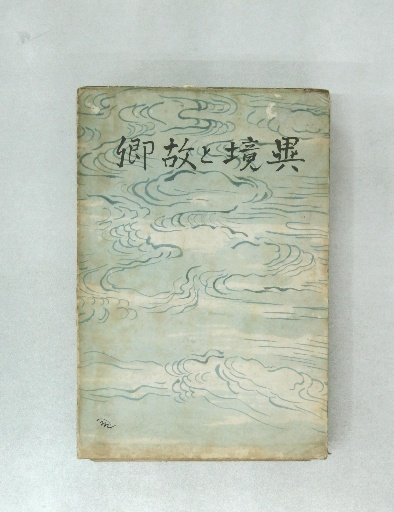 異境と故郷